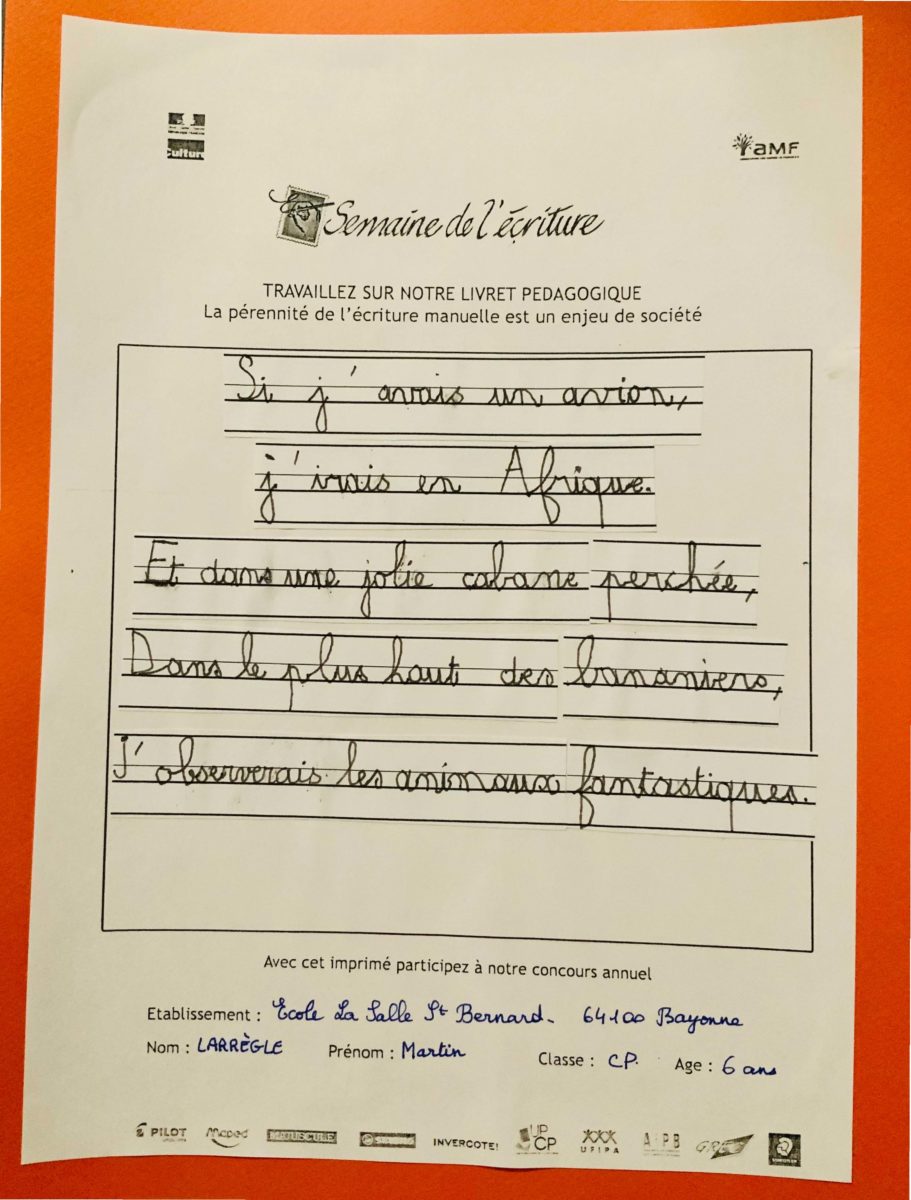 culture
aMF
Semaine de l'écriture
TRAVAILLEZ SUR NOTRE LIVRET PEDAGOGIQUE
La pérennité de l'écriture manuelle est un enjeu de société
Si j'avais un avion,
j'irais en Afrique.
Et dans une jolie cabane perchée,
Dans le plus haut des bananiers,
J'observerais les animaux fantastiques.
Avec cet imprimé participez à notre concours annuel
Etablissement : Ecole La Salle St Bernard - 64100 Bayonne
Nom : LARRÈGLE Prénom : Martin Classe : CP. Age : 6 ans
PILOT Maped MAJUSCULE INVERCOTE! UPCP UFIPA AIPB GREF